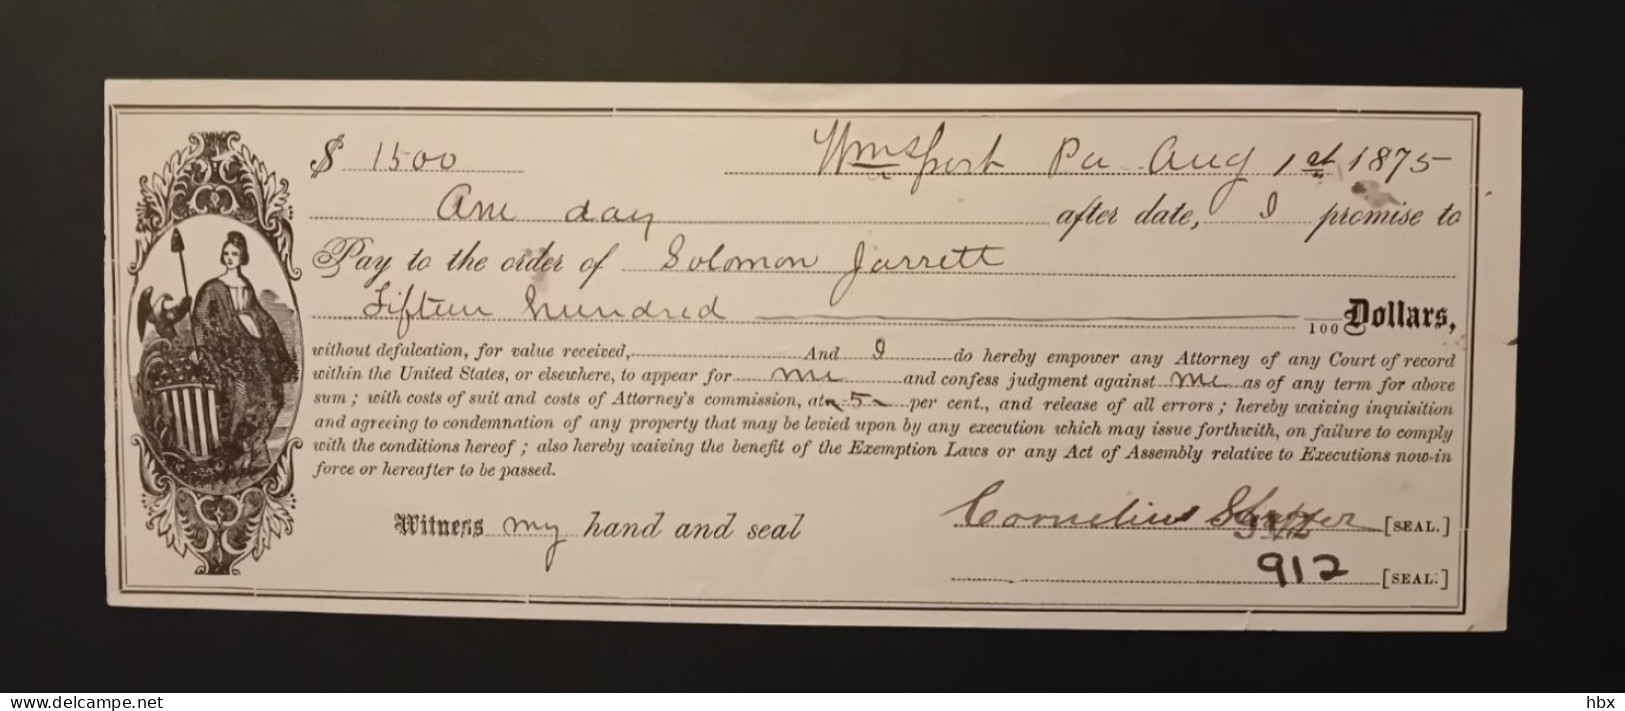 $ 1500 Wmsport Pa Aug 1st 1875
One day after date, I promise to
Pay to the order of Solomon Jarrett
Fifteen hundred 100 Dollars,
without defalcation, for value received, And I do hereby empower any Attorney of any Court of record
within the United States, or elsewhere, to appear for me and confess judgment against me as of any term for above
sum; with costs of suit and costs of Attorney's commission, at 5 per cent., and release of all errors; hereby waiving inquisition
and agreeing to condemnation of any property that may be levied upon by any execution which may issue forthwith, on failure to comply
with the conditions hereof; also hereby waiving the benefit of the Exemption Laws or any Act of Assembly relative to Executions now in
force or hereafter to be passed.
Witness my hand and seal Cornelius [SEAL.]
912 [SEAL.]
www.delcampe.net hbx